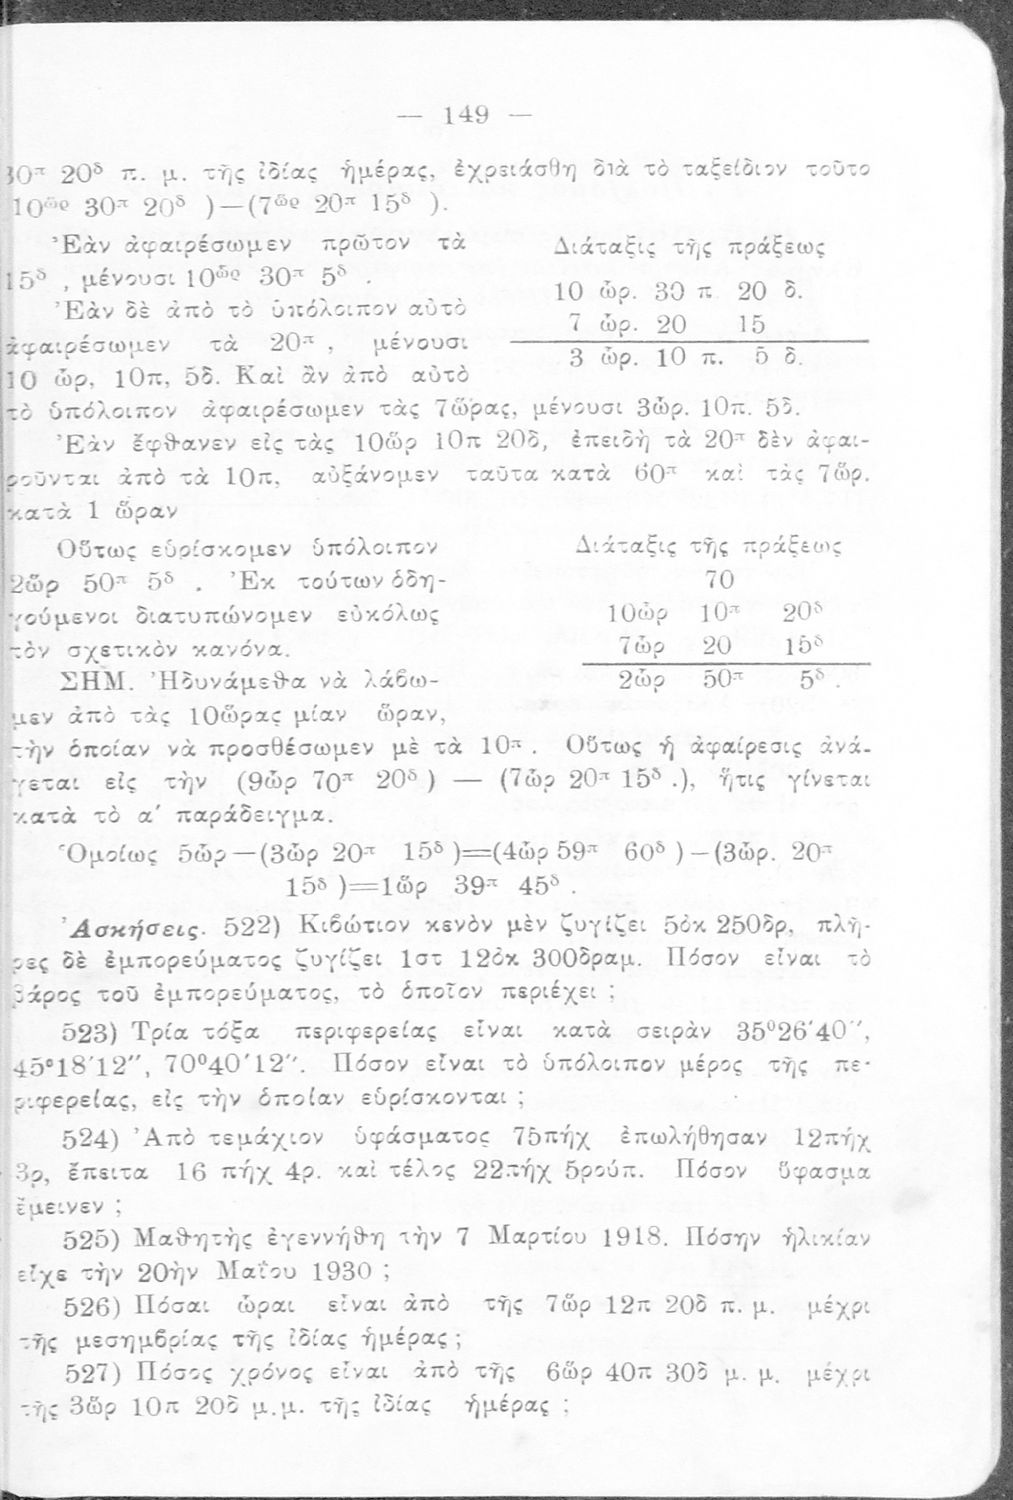 — 149 —
30π 20δ π. μ. τῆς ἰδίας ἡμέρας, ἐχρειάσθη διὰ τὸ ταξείδιον τοῦτο
10ὧρ 30π 20δ ) — (7ὧρ 20π 15δ ).
Ἐὰν ἀφαιρέσωμεν πρῶτον τὰ
15δ , μένουσι 10ὧρ 30π 5δ .
Ἐὰν δὲ ἀπὸ τὸ ὑπόλοιπον αὐτὸ
ἀφαιρέσωμεν τὰ 20π , μένουσι
10 ὧρ, 10π, 5δ. Καὶ ἂν ἀπὸ αὐτὸ
Διάταξις τῆς πράξεως
10 ὧρ. 30 π. 20 δ.
7 ὧρ. 20 15
3 ὧρ. 10 π. 5 δ.
τὸ ὑπόλοιπον ἀφαιρέσωμεν τὰς 7ὥρας, μένουσι 3ὧρ. 10π. 5δ.
Ἐὰν ἔφθανεν εἰς τὰς 10ὥρ 10π 20δ, ἐπειδὴ τὰ 20π δὲν ἀφαι-
ροῦνται ἀπὸ τὰ 10π, αὐξάνομεν ταῦτα κατὰ 60π καὶ τὰς 7ὥρ.
κατὰ 1 ὥραν
Οὕτως εὑρίσκομεν ὑπόλοιπον
2ὥρ 50π 5δ . Ἐκ τούτων ὁδη-
γούμενοι διατυπώνομεν εὐκόλως
τὸν σχετικὸν κανόνα.
ΣΗΜ. Ἠδυνάμεθα νὰ λάβω-
μεν ἀπὸ τὰς 10ὥρας μίαν ὥραν,
Διάταξις τῆς πράξεως
70
10ὧρ 10π 20δ
7ὧρ 20 15δ
2ὧρ 50π 5δ .
τὴν ὁποίαν νὰ προσθέσωμεν μὲ τὰ 10π . Οὕτως ἡ ἀφαίρεσις ἀνά-
γεται εἰς τὴν (9ὧρ 70π 20δ ) — (7ὧρ 20π 15δ .), ἥτις γίνεται
κατὰ τὸ α΄ παράδειγμα.
Ὁμοίως 5ὧρ — (3ὧρ 20π 15δ )=(4ὧρ 59π 60δ ) — (3ὧρ. 20π
15δ )=1ὥρ 39π 45δ .
Ἀσκήσεις. 522) Κιβώτιον κενὸν μὲν ζυγίζει 5ὀκ 250δρ, πλῆ-
ρες δὲ ἐμπορεύματος ζυγίζει 1στ 12ὀκ 300δραμ. Πόσον εἶναι τὸ
βάρος τοῦ ἐμπορεύματος, τὸ ὁποῖον περιέχει ;
523) Τρία τόξα περιφερείας εἶναι κατὰ σειρὰν 35°26′40″,
45°18′12″, 70°40′12″. Πόσον εἶναι τὸ ὑπόλοιπον μέρος τῆς πε-
ριφερείας, εἰς τὴν ὁποίαν εὑρίσκονται ;
524) Ἀπὸ τεμάχιον ὑφάσματος 75πήχ ἐπωλήθησαν 12πήχ
3ρ, ἔπειτα 16 πήχ 4ρ. καὶ τέλος 22πήχ 5ρούπ. Πόσον ὕφασμα
ἔμεινεν ;
525) Μαθητὴς ἐγεννήθη τὴν 7 Μαρτίου 1918. Πόσην ἡλικίαν
εἶχε τὴν 20ὴν Μαΐου 1930 ;
526) Πόσαι ὧραι εἶναι ἀπὸ τῆς 7ὥρ 12π 20δ π. μ. μέχρι
τῆς μεσημβρίας τῆς ἰδίας ἡμέρας ;
527) Πόσος χρόνος εἶναι ἀπὸ τῆς 6ὥρ 40π 30δ μ. μ. μέχρι
τῆς 3ὥρ 10π 20δ μ.μ. τῆς ἰδίας ἡμέρας ;